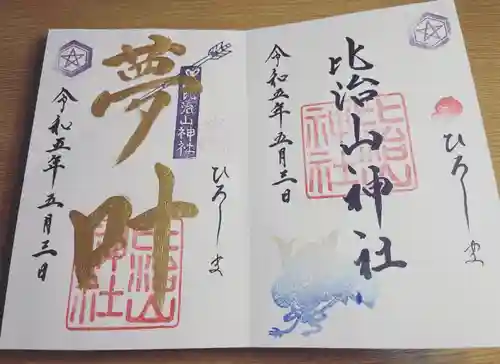 令和五年五月三日
比治山神社
比治山神社
ひろしま
令和五年五月三日
夢叶
比治山神社
比治山神社
ひろしま